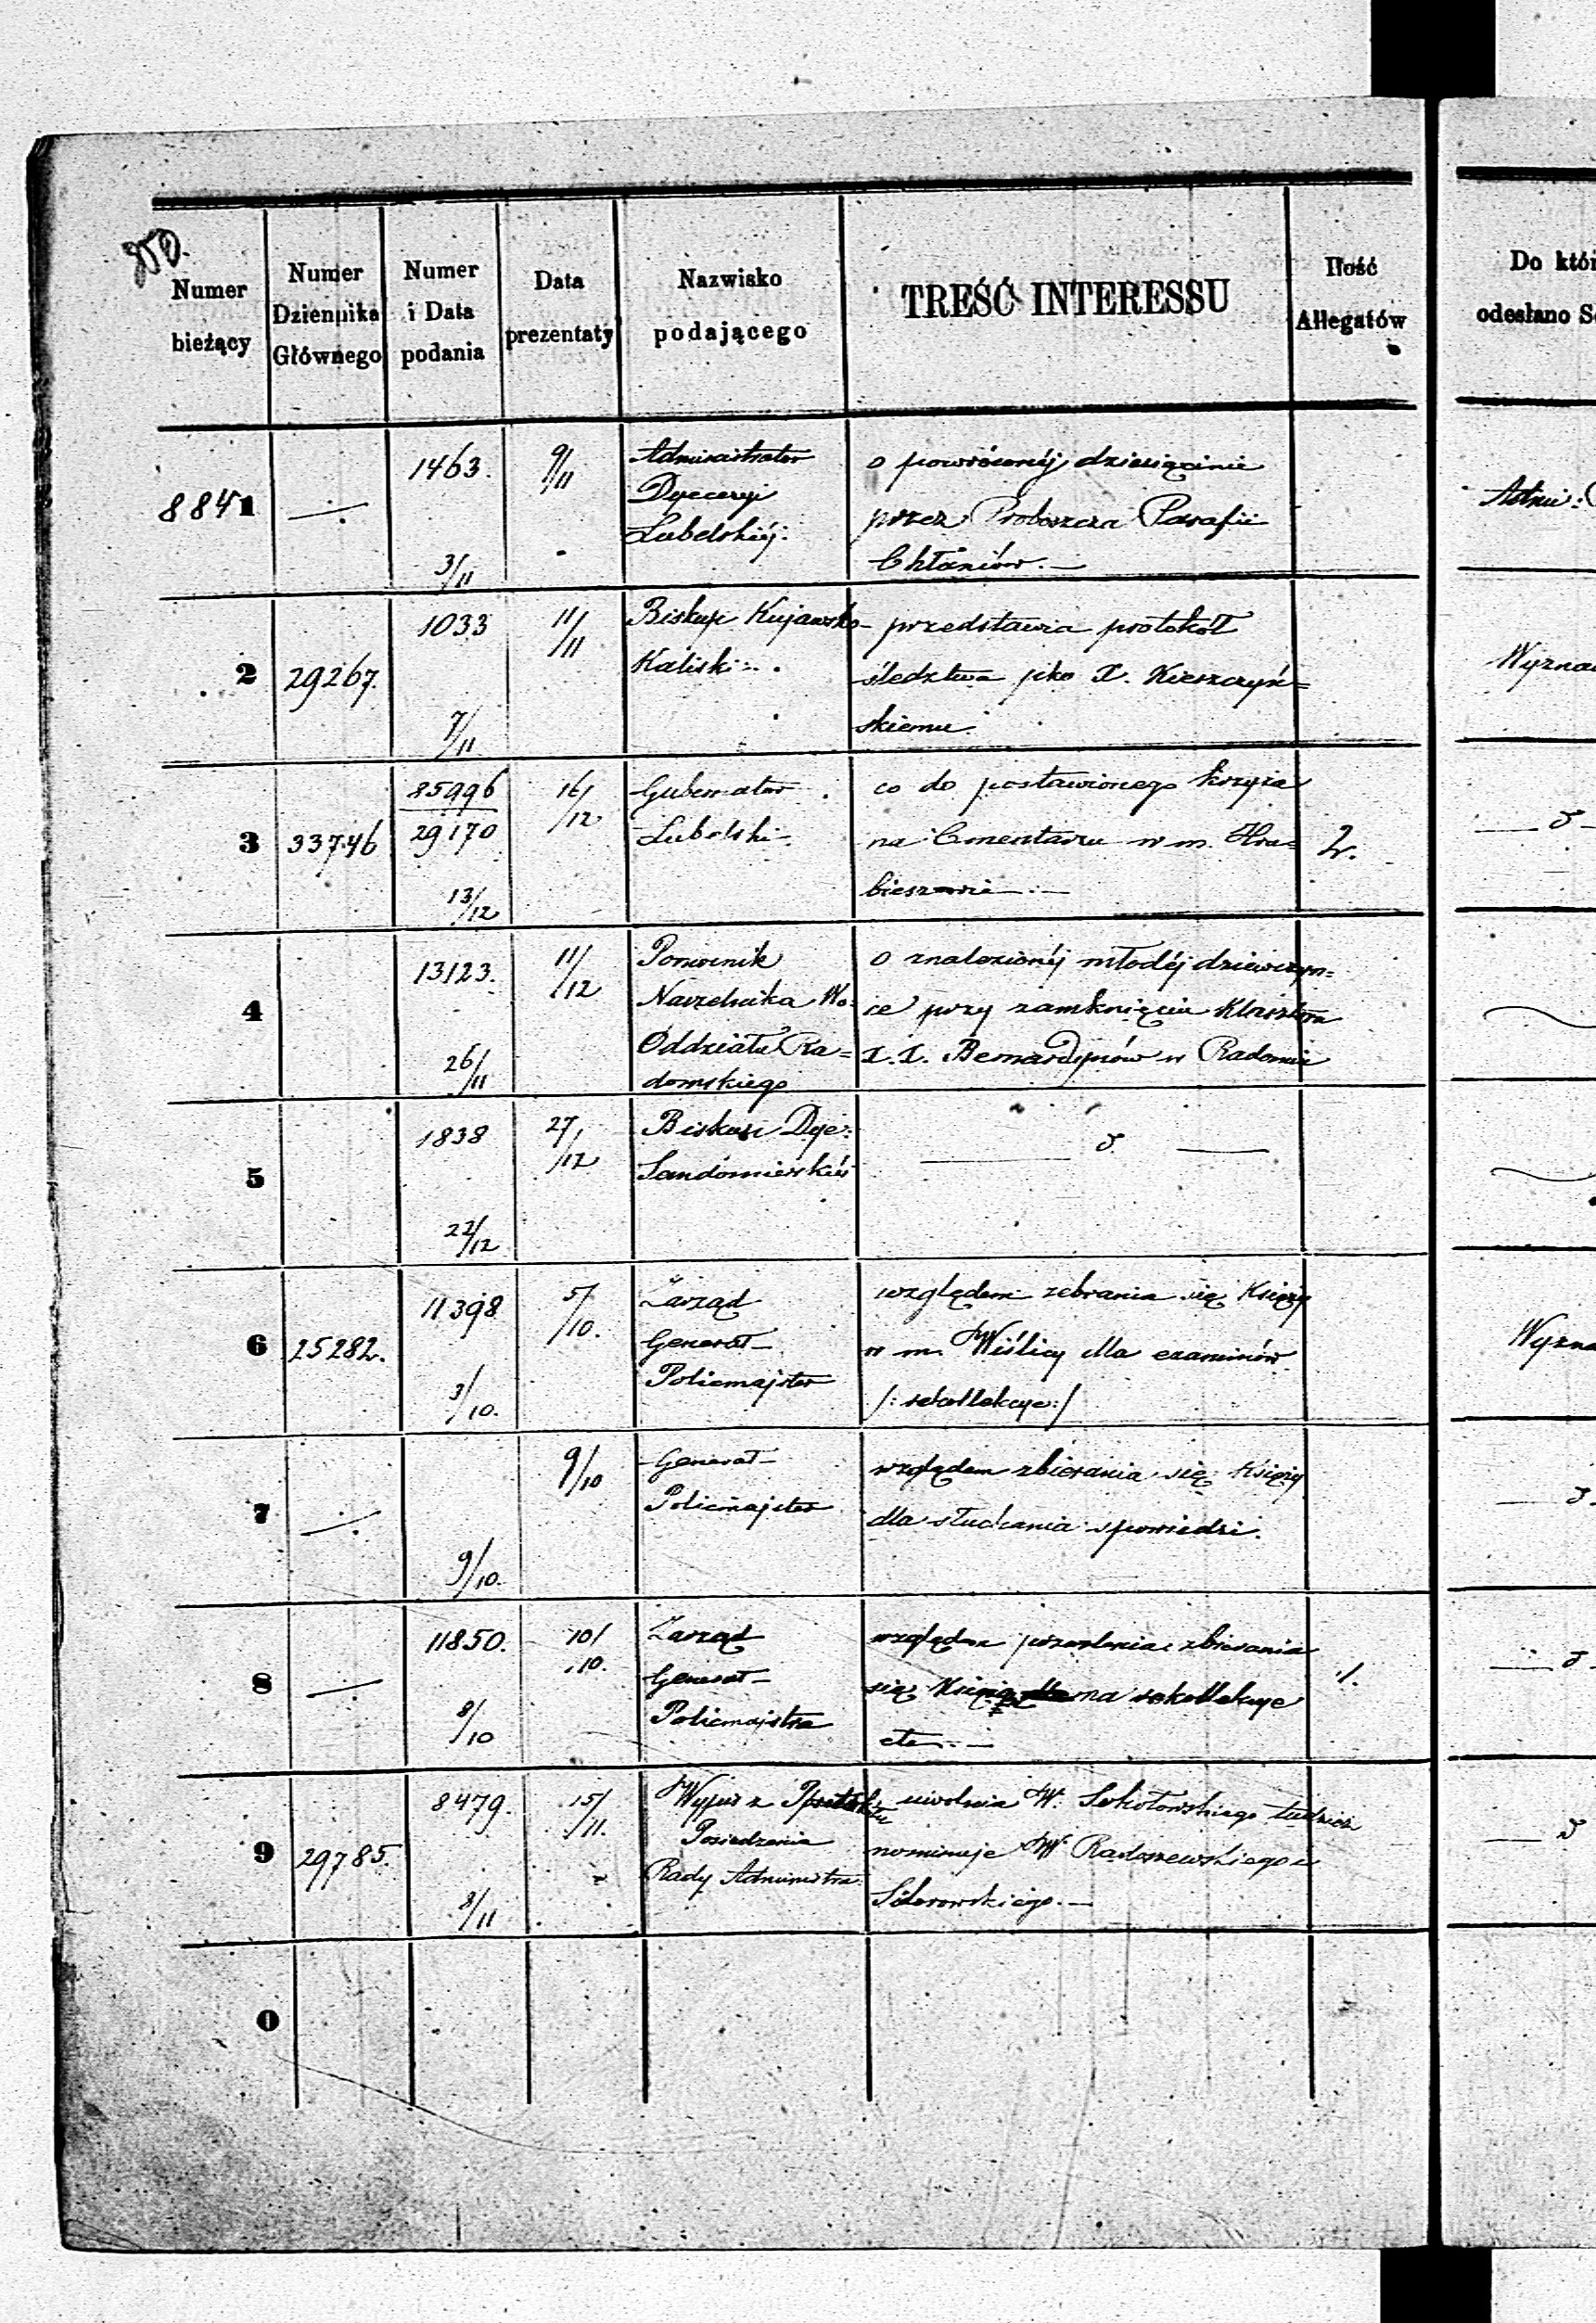 850.
Numer bieżący
Numer Dziennika Głównego
Numer i Data podania
Data prezentaty
Nazwisko podającego
TREŚĆ INTERESSU
Ilość Allegatów
Do któ
odesłano S
8841
1463.
3/11
9/11
Administrator
Dyecezyi
Lubelskiéj:
o powróconéj dziesięcinie
przez Proboszcza Parafii
Chłaniów. —
Admi:
2
29267.
1033
7/11
11/11
Biskup Kujawsko-
Kaliski
przedstawia protokół
śledztwa pko X. Kieszczyń=
skiemu.
Wyzna
3
33746
85996
29170
13/12
16/12
Gubernator
Lubelski
co do postawionego krzyża
na Cmentarzu w m. Hru=
bieszowie —
2.
4
13123.
26/11
11/12
Pomocnik
Naczelnika Wo.
Oddziału Ra=
domskiego
o znalezionéj młodéj dziewczyn=
ce przy zamknięciu Klasztora
X.X. Bernardynów w Radomiu
5
1838
22/12
27/12
Biskup Dye:
Sandomierskiéj
6
25282.
11398
3/10.
5/10.
Zarząd
Generał-
Policmajster
względem zebrania się Księży
w m. Wiślicy dla examinów
/: rekollekcye:/
Wyzna
7
9/10.
9/10
Generał-
Policmajster
względem zbierania się Księży
dla słuchania spowiedzi.
8
11850.
8/10
10/10.
Zarząd
Generał-
Policmajstra
względem pozwolenia zbierania
się Księży na rekollekcye
etc. —
1.
9
29785.
8479.
8/11
15/11.
Wypis z Protokułu
Posiedzenia
Rady Administra
uwolnia W. Sokołowskiego tudzież
nominuje W. Radoszewskiego i
0